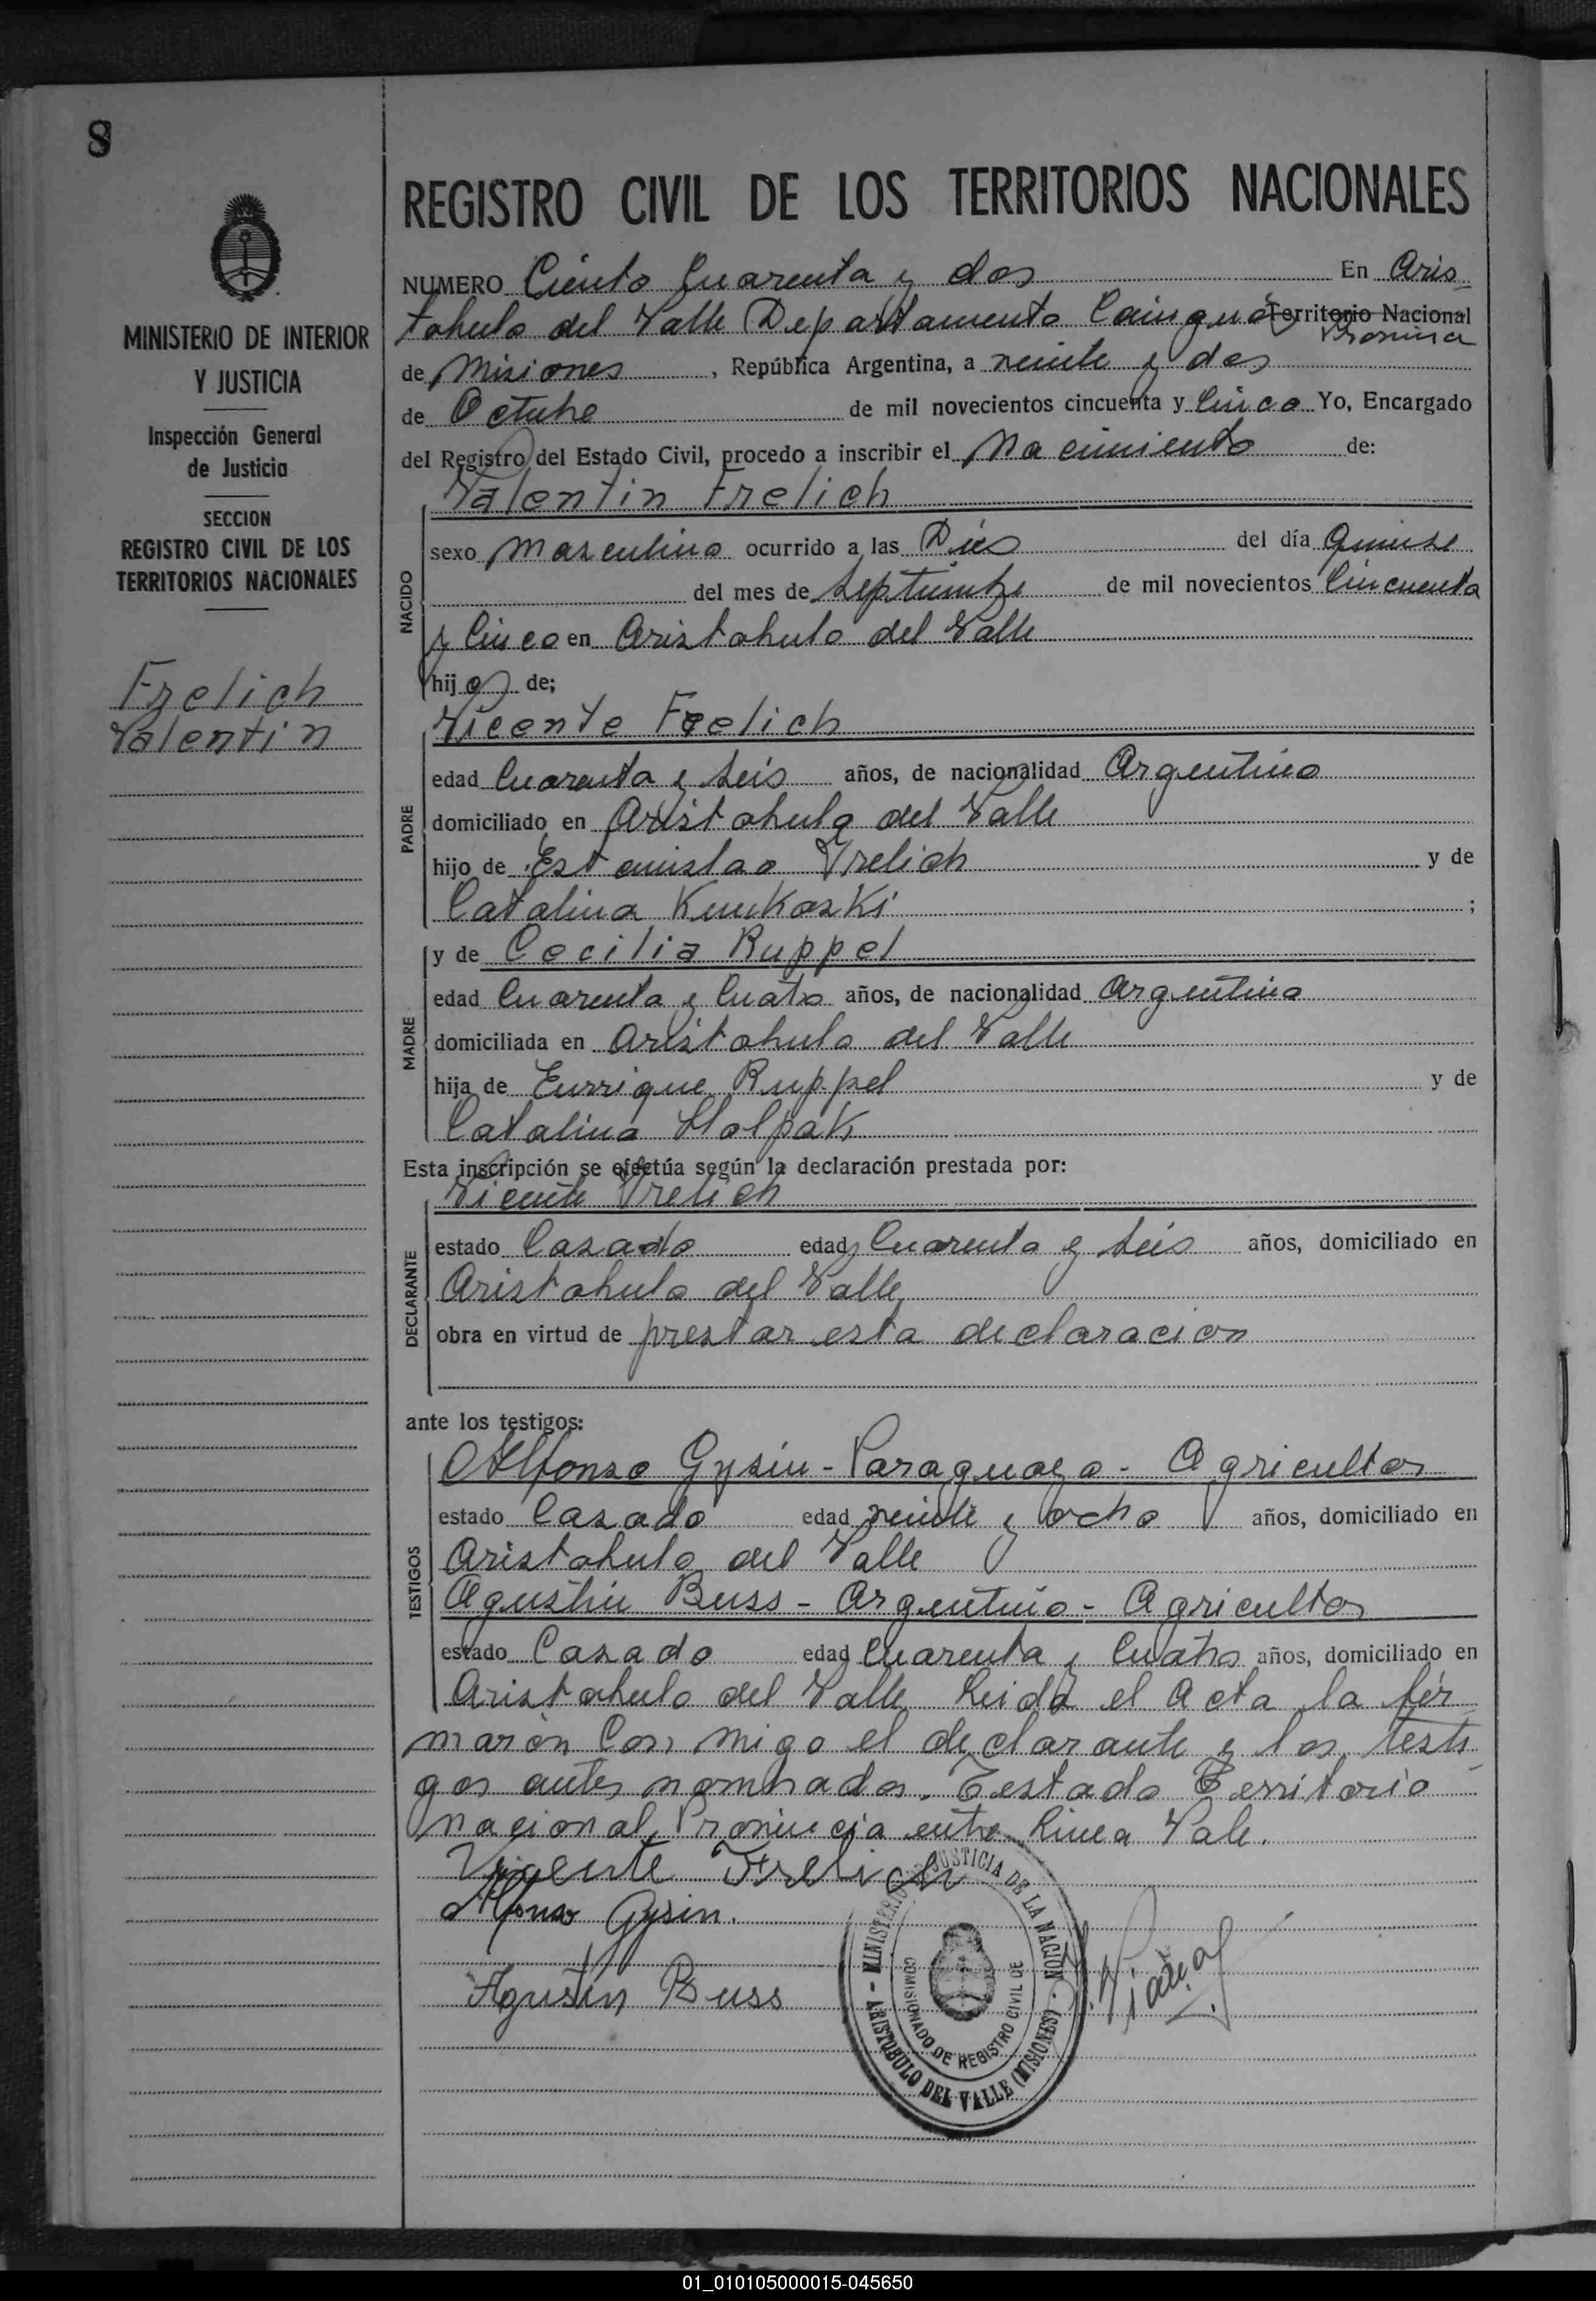 8
REGISTRO CIVIL DE LOS TERRITORIOS NACIONALES
MINISTERIO DE INTERIOR
Y JUSTICIA
Inspección General
de Justicia
SECCION
REGISTRO CIVIL DE LOS
TERRITORIOS NACIONALES
Frelich
Valentin
NUMERO Ciento Cuarenta y dos En Aris
tobulo del Valle Departamento Cainguás Territorio Nacional
Provincia
de Misiones, República Argentina, a veinte y dos
de Octubre de mil novecientos cincuenta y Cinco Yo, Encargado
del Registro del Estado Civil, procedo a inscribir el Nacimiento de:
Valentin Frelich
NACIDO
sexo Masculino ocurrido a las Dies del día Quinse
del mes de Septiembre de mil novecientos Cincuenta
y Cinco en Aristobulo del Valle
hijo de;
Vicente Frelich
PADRE
edad Cuarenta y Seis años, de nacionalidad Argentino
domiciliado en Aristobulo del Valle
hijo de Estanislao Frelich y de
Catalina ;
MADRE
y de Cecilia Ruppel
edad Cuarenta y Cuatro años, de nacionalidad Argentina
domiciliada en Aristobulo del Valle
hija de Enrrique Ruppel y de
Catalina
Esta inscripción se efectúa según la declaración prestada por:
Vicente Frelich
DECLARANTE
estado Casado edad Cuarenta y Seis años, domiciliado en
Aristobulo del Valle
obra en virtud de prestar esta declaracion
ante los testigos:
Alfonso Gysin - Paraguayo - Agricultor
TESTIGOS
estado Casado edad veinte y ocho años, domiciliado en
Aristobulo del Valle
Agustin Buss - Argentino - Agricultor
estado Casado edad Cuarenta y Cuatro años, domiciliado en
Aristobulo del Valle Leida el Acta la fir
maron Con migo el declarante y los testi
gos antes nombrados. Testado Territorio
nacional, Provincia entre linea Vale.
Vicente Frelich
Alfonso Gysin.
Agustin Buss
MINISTERIO DE JUSTICIA DE LA NACION
COMISIONADO DE REGISTRO CIVIL DE
ARISTOBULO DEL VALLE (MISIONES)
01_010105000015-045650